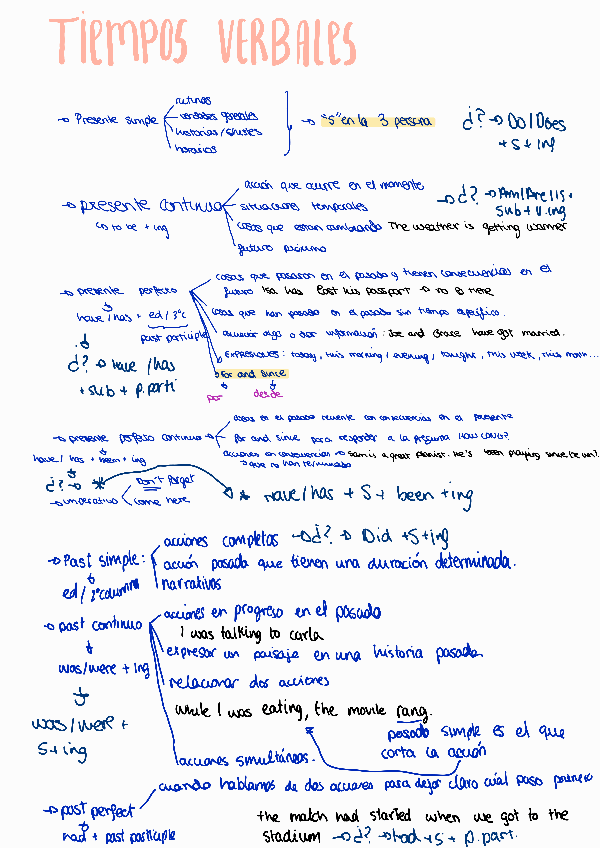 TIEMPOS VERBALES
→ Presente simple
rutinas
verdades generales
historias / chistes
horarios
→ "s" en la 3 persona
¿? → Do/Does
+ s + ing
→ presente continuo
↳ to be + ing
acción que ocurre en el momento
situaciones temporales
cosas que estan cambiando The weather is getting warmer
futuro próximo
→ ¿? → Am/Are/Is +
sub + v. ing
→ presente perfecto
have/has + ed/3ºc
past participle
¿? → Have /has
+ sub + p. parti
cosas que pasaron en el pasado y tienen consecuencias en el
futuro Isa has lost his passport →
cosas que han pasado en el pasado sin tiempo específico.
anunciar algo o dar información: Joe and Grace have got married.
EXPRESIONES: today, this morning / evening, tonight, this week, this month...
for and since
por desde
→ presente perfecto continuo →
have / has + been + ing
¿? → *
cosas en el pasado reciente con consecuencias en el presente
for and since para responder a la pregunta HOW LONG?
acciones en consecuencia → Sam is a great pianist. He's been playing since he
→ que no han terminado
→ imperativo
Don't forget
come here
* Have/has + S + been + ing
→ Past simple:
ed / 3ºcolumna
acciones completas → ¿? → Did + S + ing
acción pasada que tienen una duración determinada.
narrativas
→ past continuo
was/were + ing
was/were +
S + ing
acciones en progreso en el pasado
I was talking to carla
expresar un paisaje en una historia pasada
relacionar dos acciones
while I was eating, the movile rang.
pasado simple es el que
corta la acción
acciones simultáneas.
→ past perfect
had + past participle
cuando hablamos de dos acciones para dejar claro cuál paso primero
the match had started when we got to the
stadium → ¿? → Had + S + p. part.